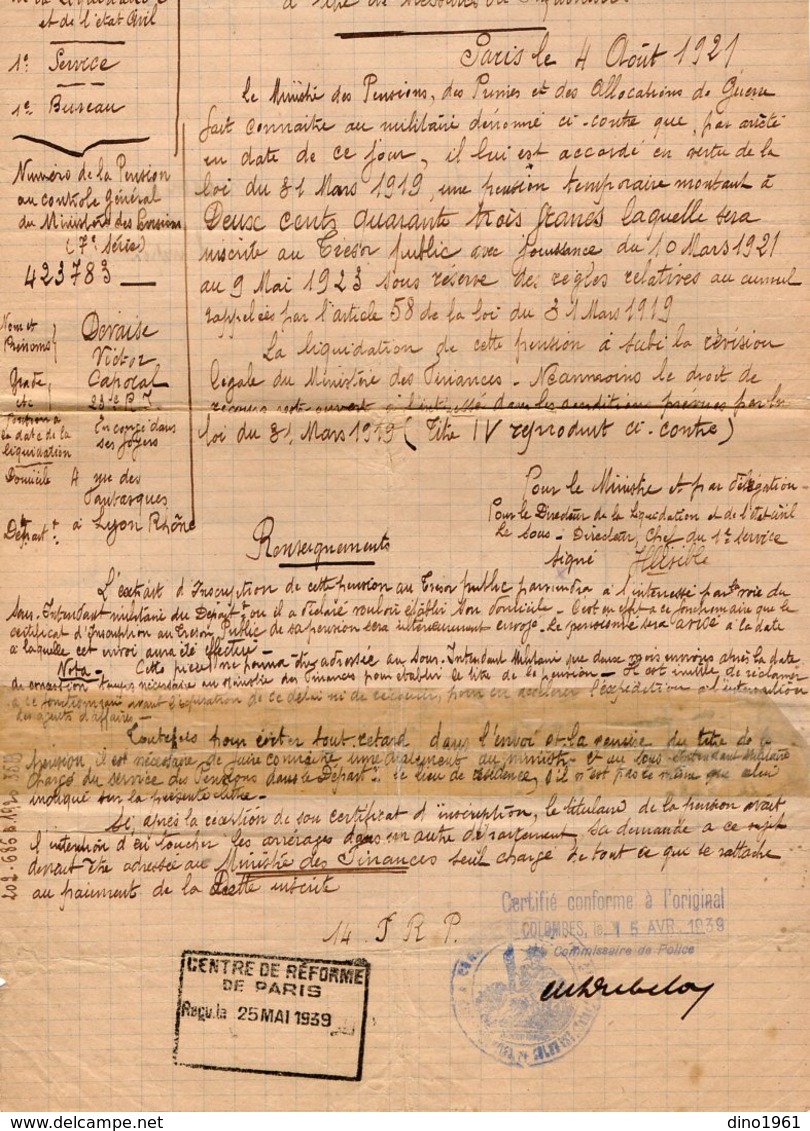 et de l'état Civil
1er Service
1er Bureau
Numéro de la Pension
au contrôle Général
du Ministère des Pensions
(7e série)
423783
Nom et
Prénoms
Devaise
Victor
Grade
etc
Caporal
23e R I
Position à
la date de la
liquidation
En congé dans
ses foyers
Domicile 4 rue des
à Lyon Rhône
Départ.t
Paris le 4 Août 1921
Le Ministre des Pensions, des Primes et des Allocations de Guerre
fait connaître au militaire dénommé ci-contre que, par arrêté
en date de ce jour, il lui est accordé en vertu de la
loi du 31 Mars 1919, une pension temporaire montant à
Deux cent quarante trois francs laquelle sera
inscrite au Trésor public avec jouissance du 10 Mars 1921
au 9 Mai 1923 sous réserve des règles relatives au cumul
rappelées par l'article 58 de la loi du 31 Mars 1919
La liquidation de cette pension a subi la révision
légale du Ministère des Finances - Néanmoins le droit de
recours reste ouvert à l'intéressé dans les conditions prévues par la
loi du 31 Mars 1919 (Titre IV reproduit ci-contre)
Pour le Ministre et par délégation
Pour le Directeur de la Liquidation et de l'état civil
Le Sous-Directeur, Chef du 1er Service
signé Illisible
Renseignements
L'extrait d'Inscription de cette pension au Trésor public parviendra à l'intéressé par la voie du
Sous-Intendant militaire du Départ.t ou il a déclaré vouloir établir son domicile - C'est en effet à ce fonctionnaire que le
certificat d'Inscription au Trésor Public de sa pension sera ultérieurement envoyé - Le pensionné sera avisé à la date
à laquelle cet envoi aura été effectué -
Nota - Cette pièce ne pourra être adressée au Sous-Intendant Militaire que deux mois environ après la date
de concession temps nécessaire au Ministère des Finances pour établir le titre de la pension - Il est inutile de réclamer
à ce fonctionnaire avant l'expiration de ce délai ni de recourir, pour en accélérer l'expédition à l'intervention
des agents d'affaires -
Toutefois pour éviter tout retard dans l'envoi et la remise du titre de la
pension, il est nécessaire de faire connaître immédiatement au ministre et au sous-intendant militaire
chargé du service des Pensions dans le Départ.t le lieu de résidence, s'il n'est pas le même que celui
indiqué sur la présente lettre -
Si, après la réception de son certificat d'inscription, le titulaire de la pension avait
l'intention d'en toucher les arrérages dans un autre département, sa demande à ce sujet
devrait être adressée au Ministre des Finances seul chargé de tout ce qui se rattache
au paiement de la Dette inscrite
14 F R P.
Certifié conforme à l'original
COLOMBES, le 15 AVR. 1939
Commissaire de Police
CENTRE DE RÉFORME
DE PARIS
Reçu le 25 MAI 1939
dino1961